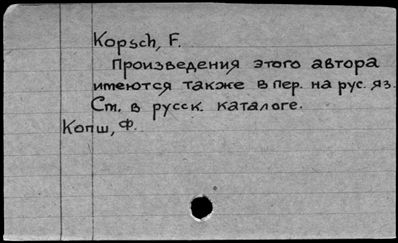 Kopsch, F.
Произведения этого автора
имеются также в пер. на рус. яз.
Ст. в русск. каталоге.
Копш, Ф.